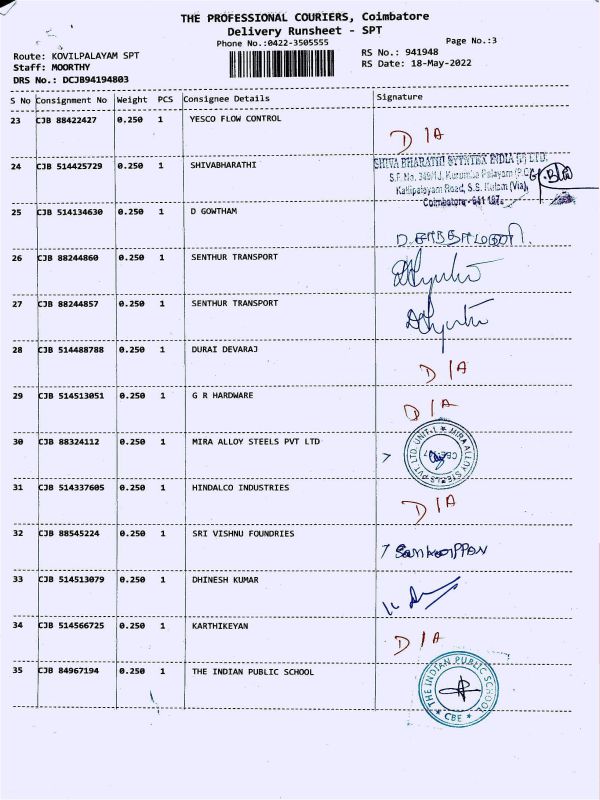 THE PROFESSIONAL COURIERS, Coimbatore
Delivery Runsheet - SPT
Phone No.:0422-3505555
Page No.:3
Route: KOVILPALAYAM SPT
RS No.: 941948
Staff: MOORTHY
RS Date: 18-May-2022
DRS No.: DCJB94194803
S No Consignment No Weight PCS Consignee Details Signature
23 CJB 88422427 0.250 1 YESCO FLOW CONTROL D/A
24 CJB 514425729 0.250 1 SHIVABHARATHI
SHIVA BHARATHI SYNTEX INDIA (P) LTD.
S.F. No. 349/1J, Kurumba Palayam (P.O)
Kalipalayam Road, S.S. Kulam (Via),
Coimbatore - 641 107.
25 CJB 514134630 0.250 1 D GOWTHAM
26 CJB 88244860 0.250 1 SENTHUR TRANSPORT
27 CJB 88244857 0.250 1 SENTHUR TRANSPORT
28 CJB 514488788 0.250 1 DURAI DEVARAJ D/A
29 CJB 514513051 0.250 1 G R HARDWARE D/A
30 CJB 88324112 0.250 1 MIRA ALLOY STEELS PVT LTD
MIRA ALLOY STEELS PVT. LTD. UNIT-1 ★
31 CJB 514337605 0.250 1 HINDALCO INDUSTRIES D/A
32 CJB 88545224 0.250 1 SRI VISHNU FOUNDRIES
33 CJB 514513079 0.250 1 DHINESH KUMAR
34 CJB 514566725 0.250 1 KARTHIKEYAN D/A
35 CJB 84967194 0.250 1 THE INDIAN PUBLIC SCHOOL
THE INDIAN PUBLIC SCHOOL
★ CBE ★